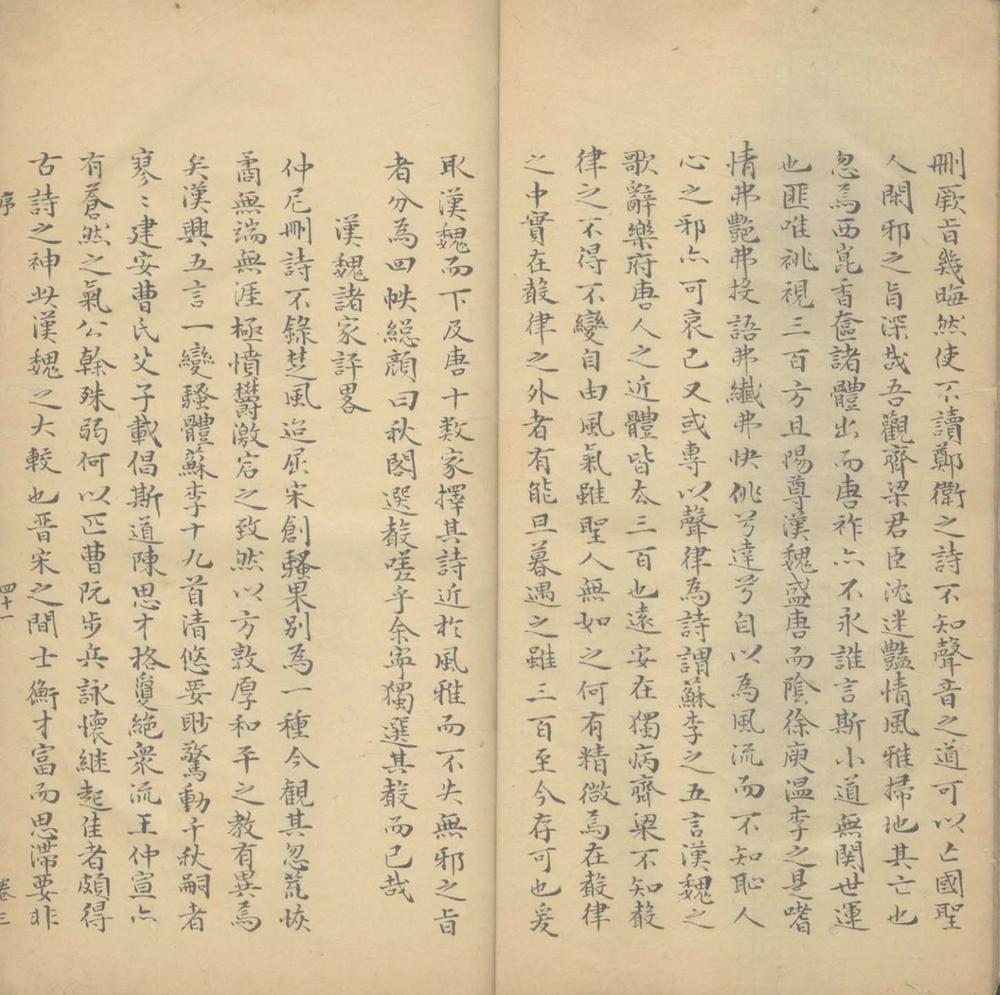 刪厥旨幾晦然使不讀鄭衛之詩不知聲音之道可以亡國聖
人閑邪之旨深哉吾觀齊梁君臣沈迷豔情風雅掃地其亡也
忽焉西崑香奩諸體出而唐祚亦不永誰言斯小道無関世運
也匪唯祧視三百方且陽尊漢魏盛唐而陰徐庾溫李之是嗜
情弗艷弗投語弗纖弗快佻兮達兮自以為風流而不知恥人
心之邪亦可哀已又或專以聲律為詩謂蘇李之五言漢魏之
歌辭樂府唐人之近體皆太三百也遠安在獨病齊梁不知嗀
律之不得不變自由風氣雖聖人無如之何有精微焉在嗀律
之中實在嗀律之外者有能旦暮遇之雖三百至今存可也爰
取漢魏而下及唐十数家擇其詩近於風雅而不失無邪之旨
者分為四帙總顏曰秋閣選嗀嗟乎余寧獨選其嗀而已哉
漢魏諸家評畧
仲尼刪詩不錄楚風迨屈宋創騷果別為一種今觀其忽荒恢
矞無端無涯極憤欝激宕之致然以方敦厚和平之教有異焉
矣漢興五言一變騷體蘇李十九首清悠要眇驚動千秋嗣者
寥〻建安曹氏父子載倡斯道陳思才格敻絕衆流王仲宣亦
有蒼然之氣公幹殊弱何以匹曹阮步兵詠懷継起佳者頗得
古詩之神此漢魏之大較也晋宋之間士衡才富而思滞要非
序 四十一 卷三